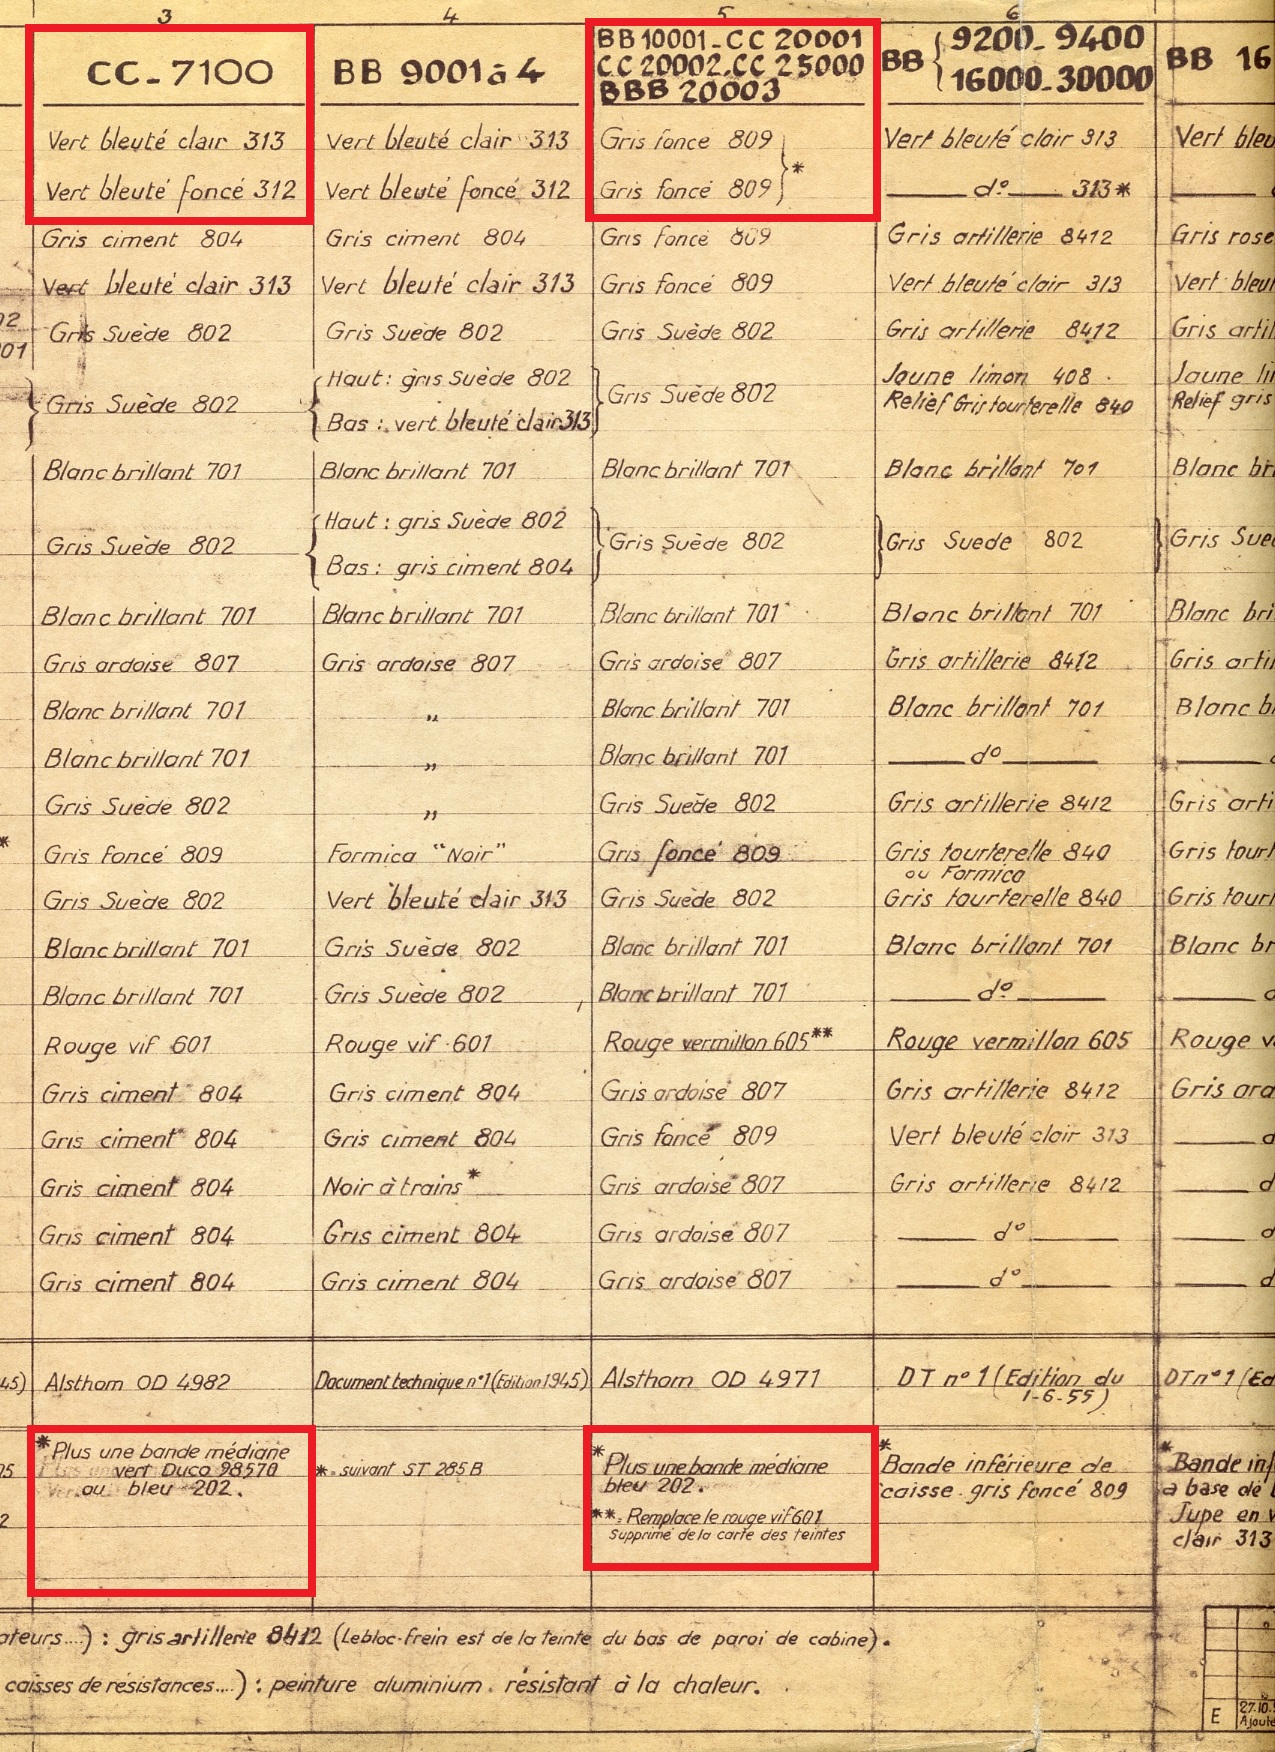 3 4 5 6
CC-7100 BB 9001 à 4 BB 10001-CC 20001 BB { 9200-9400 BB 16
CC 20002.CC 25000 16000-30000
BBB 20003
Vert bleuté clair 313 Vert bleuté clair 313 Gris foncé 809 } * Vert bleuté clair 313 Vert bleu
Vert bleuté foncé 312 Vert bleuté foncé 312 Gris foncé 809 d° 313*
Gris ciment 804 Gris ciment 804 Gris foncé 809 Gris artillerie 8412 Gris rose
Vert bleuté clair 313 Vert bleuté clair 313 Gris foncé 809 Vert bleuté clair 313 Vert bleu
02 Gris Suède 802 Gris Suède 802 Gris Suède 802 Gris artillerie 8412 Gris artil
01
} Gris Suède 802 { Haut: gris Suède 802 } Gris Suède 802 Jaune limon 408 Jaune li
Bas : vert bleuté clair 313 Relief Gris tourterelle 840 Relief gris
Blanc brillant 701 Blanc brillant 701 Blanc brillant 701 Blanc brillant 701 Blanc br
Gris Suède 802 { Haut : gris Suède 802 } Gris Suède 802 } Gris Suede 802 } Gris Sue
Bas : gris ciment 804
Blanc brillant 701 Blanc brillant 701 Blanc brillant 701 Blanc brillant 701 Blanc bri
Gris ardoise 807 Gris ardoise 807 Gris ardoise 807 Gris artillerie 8412 Gris arti
Blanc brillant 701 " Blanc brillant 701 Blanc brillant 701 Blanc b
Blanc brillant 701 " Blanc brillant 701 d°
Gris Suède 802 " Gris Suède 802 Gris artillerie 8412 Gris arti
* Gris foncé 809 Formica "Noir" Gris foncé 809 Gris tourterelle 840 Gris tour
ou Formica
Gris Suède 802 Vert bleuté clair 313 Gris Suède 802 Gris tourterelle 840 Gris tour
Blanc brillant 701 Gris Suède 802 Blanc brillant 701 Blanc brillant 701 Blanc br
Blanc brillant 701 Gris Suède 802 Blanc brillant 701 d°
Rouge vif 601 Rouge vif 601 Rouge vermillon 605** Rouge vermillon 605 Rouge v
Gris ciment 804 Gris ciment 804 Gris ardoise 807 Gris artillerie 8412 Gris ard
Gris ciment 804 Gris ciment 804 Gris foncé 809 Vert bleuté clair 313 d
Gris ciment 804 Noir à trains* Gris ardoise 807 Gris artillerie 8412 d
Gris ciment 804 Gris ciment 804 Gris ardoise 807 d° d
Gris ciment 804 Gris ciment 804 Gris ardoise 807 d° d
45) Alsthom OD 4982 Document technique n°1 (Edition 1945) Alsthom OD 4971 DT n°1 (Edition du DT n°1 (Ed
1-6-55)
* Plus une bande médiane * Plus une bande médiane * Bande inférieure de * Bande inf
05 vert Duco 98570 * suivant ST 285 B bleu 202. caisse gris foncé 809 a base de
ou bleu 202.
2 ** Remplace le rouge vif 601 Jupe en v
Supprimé de la carte des teintes clair 313
ateurs....) : gris artillerie 8412 (Le bloc-frein est de la teinte du bas de paroi de cabine).
caisses de résistances....) : peinture aluminium résistant à la chaleur.
E 27.10.
Ajouté